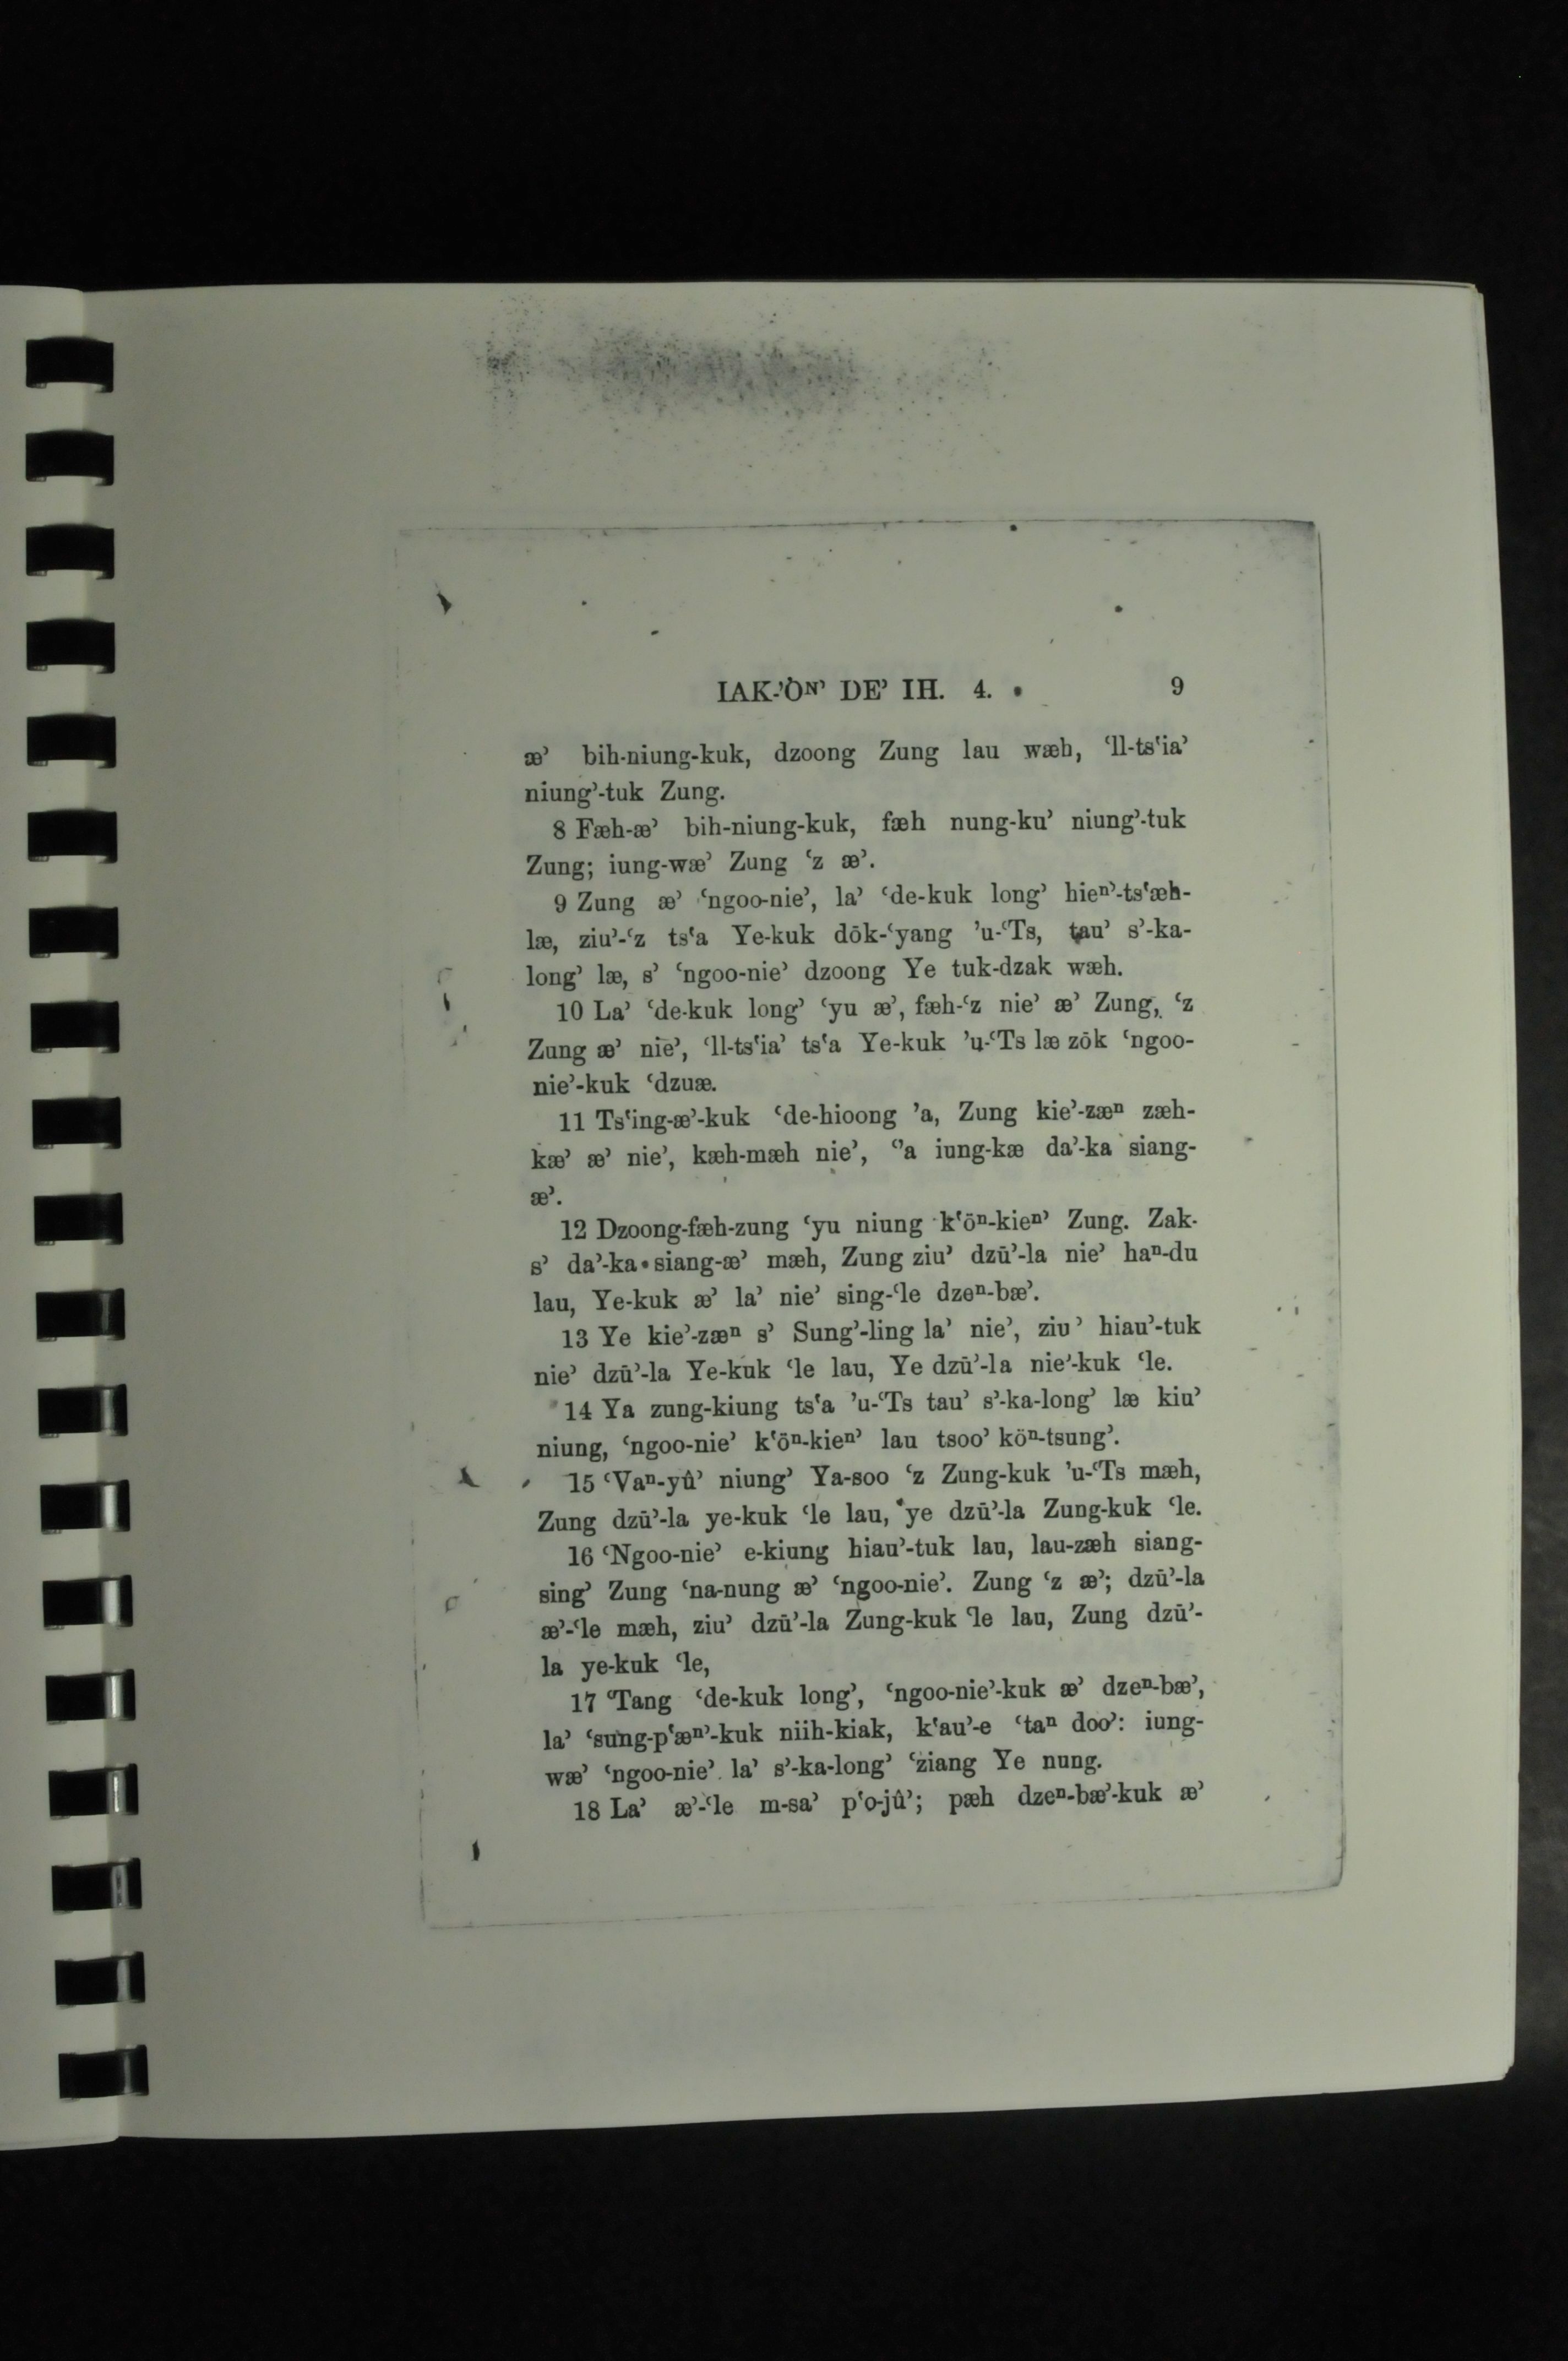 IAK-’ÒN’ DE’ IH. 4. 9
æ’ bih-niung-kuk, dzoong Zung lau wæh, ‘ll-ts‘ia’
niung’-tuk Zung.
8 Fæh-æ’ bih-niung-kuk, fæh nung-ku’ niung’-tuk
Zung; iung-wæ’ Zung ‘z æ’.
9 Zung æ’ ‘ngoo-nie’, la’ ‘de-kuk long’ hieⁿ’-ts‘æh-
læ, ziu’-‘z ts‘a Ye-kuk dōk-‘yang ’u-‘Ts, tau’ s’-ka-
long’ læ, s’ ‘ngoo-nie’ dzoong Ye tuk-dzak wæh.
10 La’ ‘de-kuk long’ ‘yu æ’, fæh-‘z nie’ æ’ Zung, ‘z
Zung æ’ nie’, ‘ll-ts‘ia’ ts‘a Ye-kuk ’u-‘Ts læ zōk ‘ngoo-
nie’-kuk ‘dzuæ.
11 Ts‘ing-æ’-kuk ‘de-hioong ’a, Zung kie’-zæⁿ zæh-
kæ’ æ’ nie’, kæh-mæh nie’, ‘’a iung-kæ da’-ka siang-
æ’.
12 Dzoong-fæh-zung ‘yu niung k‘öⁿ-kieⁿ’ Zung. Zak-
s’ da’-ka siang-æ’ mæh, Zung ziu’ dzū’-la nie’ haⁿ-du
lau, Ye-kuk æ’ la’ nie’ sing-‘le dzeⁿ-bæ’.
13 Ye kie’-zæⁿ s’ Sung’-ling la’ nie’, ziu’ hiau’-tuk
nie’ dzū’-la Ye-kuk ‘le lau, Ye dzū’-la nie’-kuk ‘le.
14 Ya zung-kiung ts‘a ’u-‘Ts tau’ s’-ka-long’ læ kiu’
niung, ‘ngoo-nie’ k‘öⁿ-kieⁿ’ lau tsoo’ köⁿ-tsung’.
15 ‘Vaⁿ-yû’ niung’ Ya-soo ‘z Zung-kuk ’u-‘Ts mæh,
Zung dzū’-la ye-kuk ‘le lau, ye dzū’-la Zung-kuk ‘le.
16 ‘Ngoo-nie’ e-kiung hiau’-tuk lau, lau-zæh siang-
sing’ Zung ‘na-nung æ’ ‘ngoo-nie’. Zung ‘z æ’; dzū’-la
æ’-‘le mæh, ziu’ dzū’-la Zung-kuk ‘le lau, Zung dzū’-
la ye-kuk ‘le,
17 ‘Tang ‘de-kuk long’, ‘ngoo-nie’-kuk æ’ dzeⁿ-bæ’,
la’ ‘sung-p‘æⁿ’-kuk niih-kiak, k‘au’-e ‘taⁿ doo’: iung-
wæ’ ‘ngoo-nie’ la’ s’-ka-long’ ‘ziang Ye nung.
18 La’ æ’-‘le m-sa’ p‘o-jû’; pæh dzeⁿ-bæ’-kuk æ’